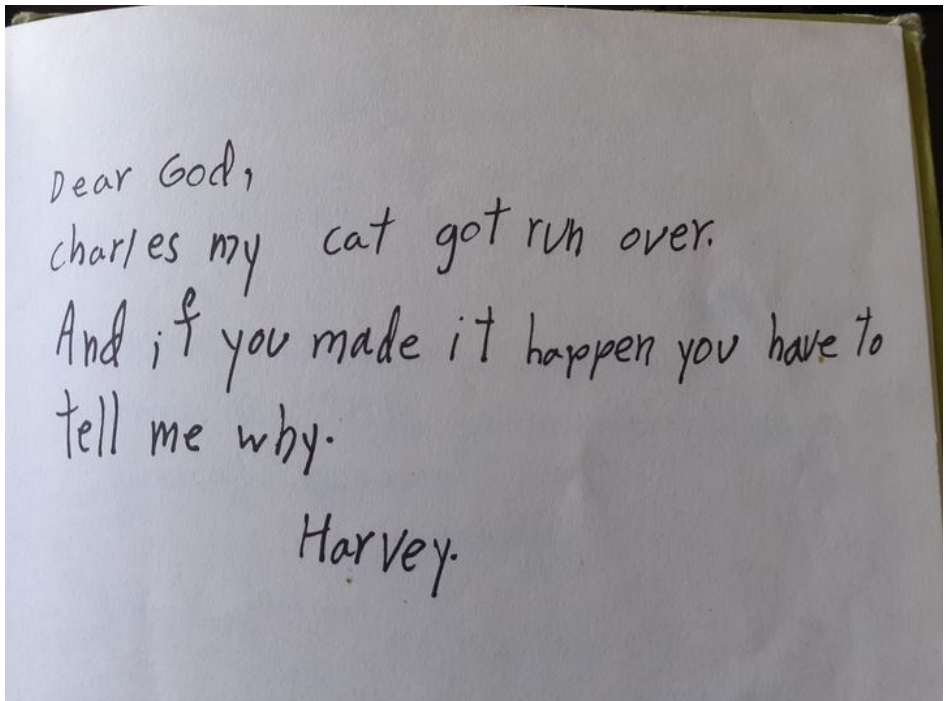 Dear God,
charles my cat got run over.
And if you made it happen you have to
tell me why.
Harvey.